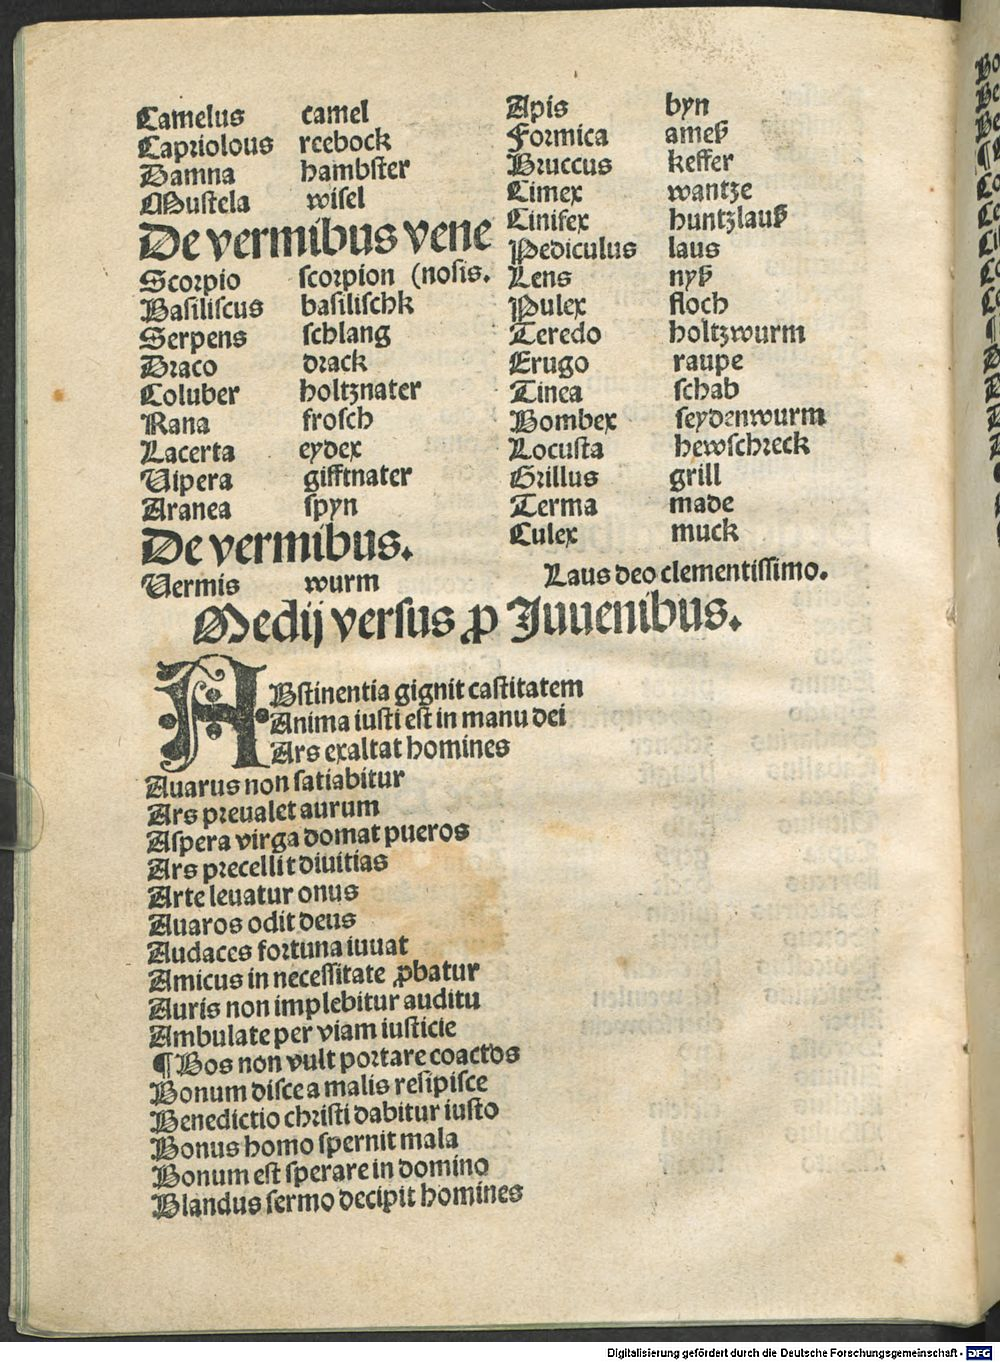 Camelus camel
Capriolous reebock
Damna hambster
Mustela wisel
De vermibus vene
Scorpio scorpion (nosis.
Basiliscus basilischk
Serpens schlang
Draco drack
Coluber holtznater
Rana frosch
Lacerta eydex
Vipera gifftnater
Aranea spyn
De vermibus.
Vermis wurm
Apis byn
Formica ameß
Bruccus keffer
Cimex wantze
Cinifex huntzlauß
Pediculus laus
Lens nyß
Pulex floch
Teredo holtzwurm
Erugo raupe
Tinea schab
Bombex seydenwurm
Locusta hewschreck
Grillus grill
Terma made
Culex muck
Laus deo clementissimo.
Medij versus ꝓ Juuenibus.
ABstinentia gignit castitatem
Anima iusti est in manu dei
Ars exaltat homines
Auarus non satiabitur
Ars preualet aurum
Aspera virga domat pueros
Ars precellit diuitias
Arte leuatur onus
Auaros odit deus
Audaces fortuna iuuat
Amicus in necessitate ꝓbatur
Auris non implebitur auditu
Ambulate per viam iusticie
¶ Bos non vult portare coactos
Bonum disce a malis resipisce
Benedictio christi dabitur iusto
Bonus homo spernit mala
Bonum est sperare in domino
Blandus sermo decipit homines
Digitalisierung gefördert durch die Deutsche Forschungsgemeinschaft - DFG